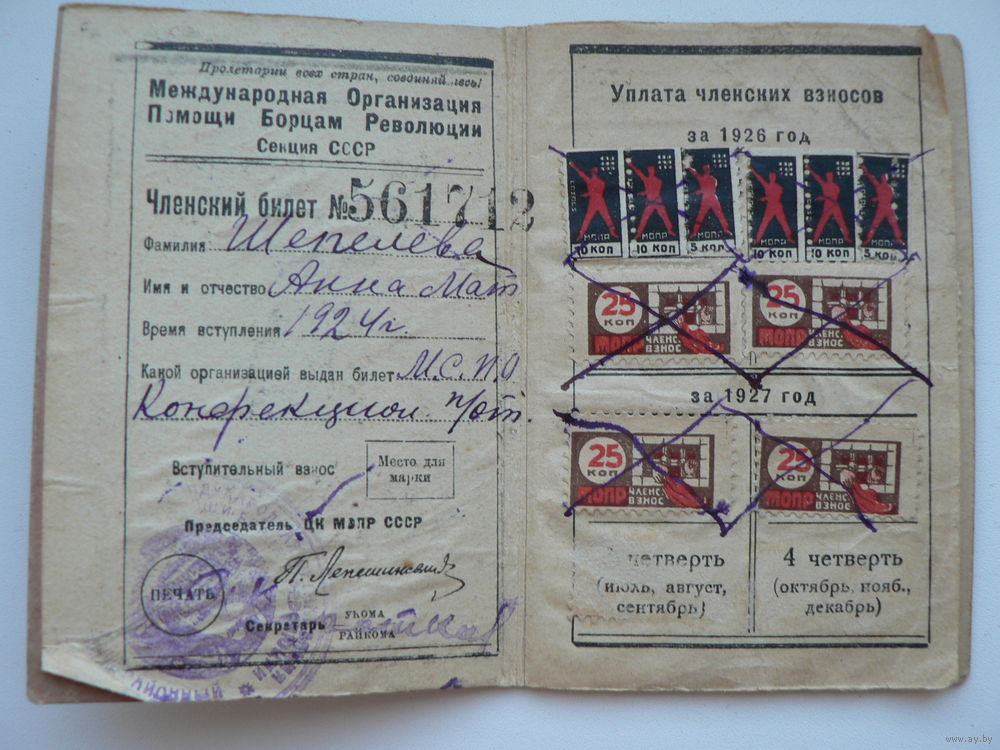 Пролетарии всех стран, соединяйтесь!
Международная Организация
Помощи Борцам Революции
Секция СССР
Членский билет № 561712
Фамилия Шепелева
Имя и отчество Анна Мат
Время вступления 1924 г.
Какой организацией выдан билет М.С.П.О
Конфекцион. п/от.
Вступительный взнос
Место для
марки
Председатель ЦК МОПР СССР
П. Лепешинский
ПЕЧАТЬ
Секретарь УКОМА
РАЙКОМА
Уплата членских взносов
за 1926 год
МОПР МОПР МОПР МОПР
10 КОП 10 КОП 5 КОП 10 КОП 10 КОП 5 КОП
25 КОП 25 КОП
МОПР ЧЛЕНС. ВЗНОС МОПР ЧЛЕНС. ВЗНОС
за 1927 год
25 КОП 25 КОП
МОПР ЧЛЕНС. ВЗНОС МОПР ЧЛЕНС. ВЗНОС
четверть
(июль, август,
сентябрь)
4 четверть
(октябрь, нояб.,
декабрь)
www.ay.by